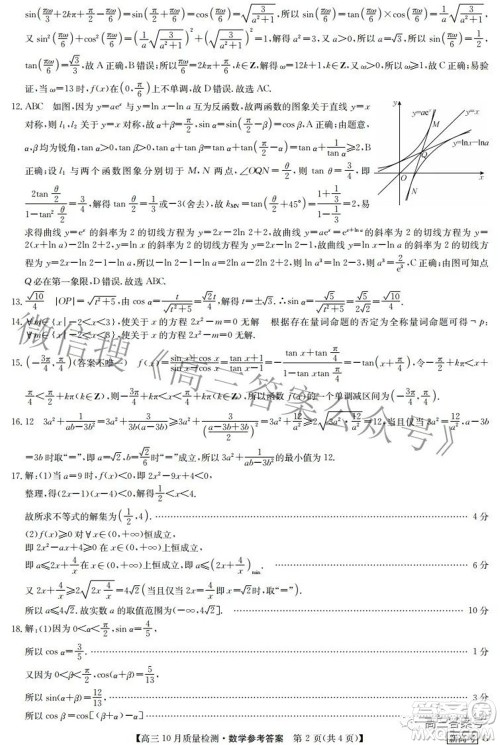 sin(πω/6+2kπ+π/2-π/6)=sin(π/2+πω/6)=cos(πω/6)=√(3/(a²+1)), 所以 sin(πω/6)=tan(πω/6)×cos(πω/6)=1/a√(3/(a²+1)).
又 sin²(πω/6)+cos²(πω/6)=(1/a√(3/(a²+1)))²+(√(3/(a²+1)))²=1,解得 a²=3,又 a>0,所以 a=√3,所以 sin(πω/6)=1/2,
tan(πω/6)=√3/3,故 A 正确,B 错误;所以πω/6=2kπ+π/6,k∈Z,解得 ω=12k+1,k∈Z,又 ω>0,所以 ω≥1,故 C 正确;易验
证,当 ω=13 时,f(x)在(0,π/6)上不单调,故 D 错误.故选 AC.
12. ABC 如图,因为 y=aeˣ 与 y=ln x-ln a 互为反函数,故两函数的图象关于直线 y=x
对称,则 l₁,l₂ 关于 y=x 对称,故 α+β=π/2,sin α=sin(π/2-β)=cos β,A 正确;由题意,
α,β 均为锐角,tan α>0,tan β>0,tan α+tan β=tan α+tan(π/2-α)=tan α+1/tan α≥2,B
正确;设 l₁ 与两个函数图象分别切于 M,N 两点,∠OQN=θ/2,则 tan θ=3/4,即
2tan θ/2/(1-tan² θ/2)=3/4,解得 tan θ/2=1/3或-3(舍去),故 kMN=tan(θ/2+45°)=(1+1/3)/(1-1/3)=2,易
求得曲线 y=eˣ 的斜率为 2 的切线方程为 y=2x-2ln 2+2,故曲线 y=aeˣ=eˣ⁺ˡⁿ ᵃ 的斜率为 2 的切线方程为 y=
2(x+ln a)-2ln 2+2,y=ln x 的斜率为 2 的切线方程为 y=2x-ln 2-1,故曲线 y=ln x-ln a 的斜率为 2 的切线
方程为 y=2x-ln 2-1-ln a,所以-ln 2-1-ln a=2ln a-2ln 2+2,则 ln a³=ln 2-3,则 a³=2/e³,C 正确;由图可知点
Q 必在第一象限,D 错误.故选 ABC.
13. √10/4 |OP|=√(t²+5),由 cos α=t/√(t²+5)=√2t/4,解得 t=±√3.∴sin α=√5/√(t²+5)=√10/4.
14. ∀m∈{x|-2<x<3},使关于 x 的方程 2x²-m=0 无解 根据存在量词命题的否定为全称量词命题可得¬p:
∀m∈{x|-2<x<3},使关于 x 的方程 2x²-m=0 无解.
15. (-3π/4,π/4)(答案不唯一) f(x)=(sin x+cos x)/(sin x-cos x)=(tan x+1)/(tan x-1)=-(tan x+tan π/4)/(1-tan x tan π/4)=-tan(x+π/4),令-π/2+kπ<x+
π/4<π/2+kπ(k∈Z),则-3π/4+kπ<x<π/4+kπ(k∈Z),所以函数 f(x)的一个单调减区间为(-3π/4,π/4).
16. 12 3a²+1/(ab-3b²)=3a²+3/((a-3b)3b)≥3a²+3/((a-3b+3b)/2)²=3a²+12/a²≥2√(3a²·12/a²)=12,当且仅当 3a²=12/a²,a-3b
=3b 时取“=”,即 a=√2,b=√2/6时“=”成立,所以 3a²+1/(ab-3b²)的最小值为 12.
17. 解:(1)当 a=9 时,f(x)<0,即 2x²-9x+4<0,
整理,得(2x-1)(x-4)<0,解得1/2<x<4.
故所求不等式的解集为(1/2,4). 4 分
(2)f(x)≥0 对∀x∈(0,+∞)恒成立,
即 2x²-ax+4≥0 在 x∈(0,+∞)上恒成立,
即 a≤2x+4/x在 x∈(0,+∞)上恒成立,即 a≤(2x+4/x)min. 6 分
又 2x+4/x≥2√(2x·4/x)=4√2(当且仅当 2x=4/x即 x=√2时,取“=”).
所以 a≤4√2.故实数 a 的取值范围为(-∞,4√2]. 10 分
18. 解:(1)因为 0<α<π/2,sin α=4/5,
所以 cos α=3/5. 1 分
又因为 0<β<π/2,cos(α+β)=5/13,
所以 sin(α+β)=12/13. 3 分
所以 cos β=cos[(α+β)-α]
【高三 10 月质量检测·数学参考答案 第 2 页(共 4 页)】
y=aeˣ
y=x
y=ln x-ln a
M
Q
O
N
x
y
微信搜《高三答案公众号》
高三答案号